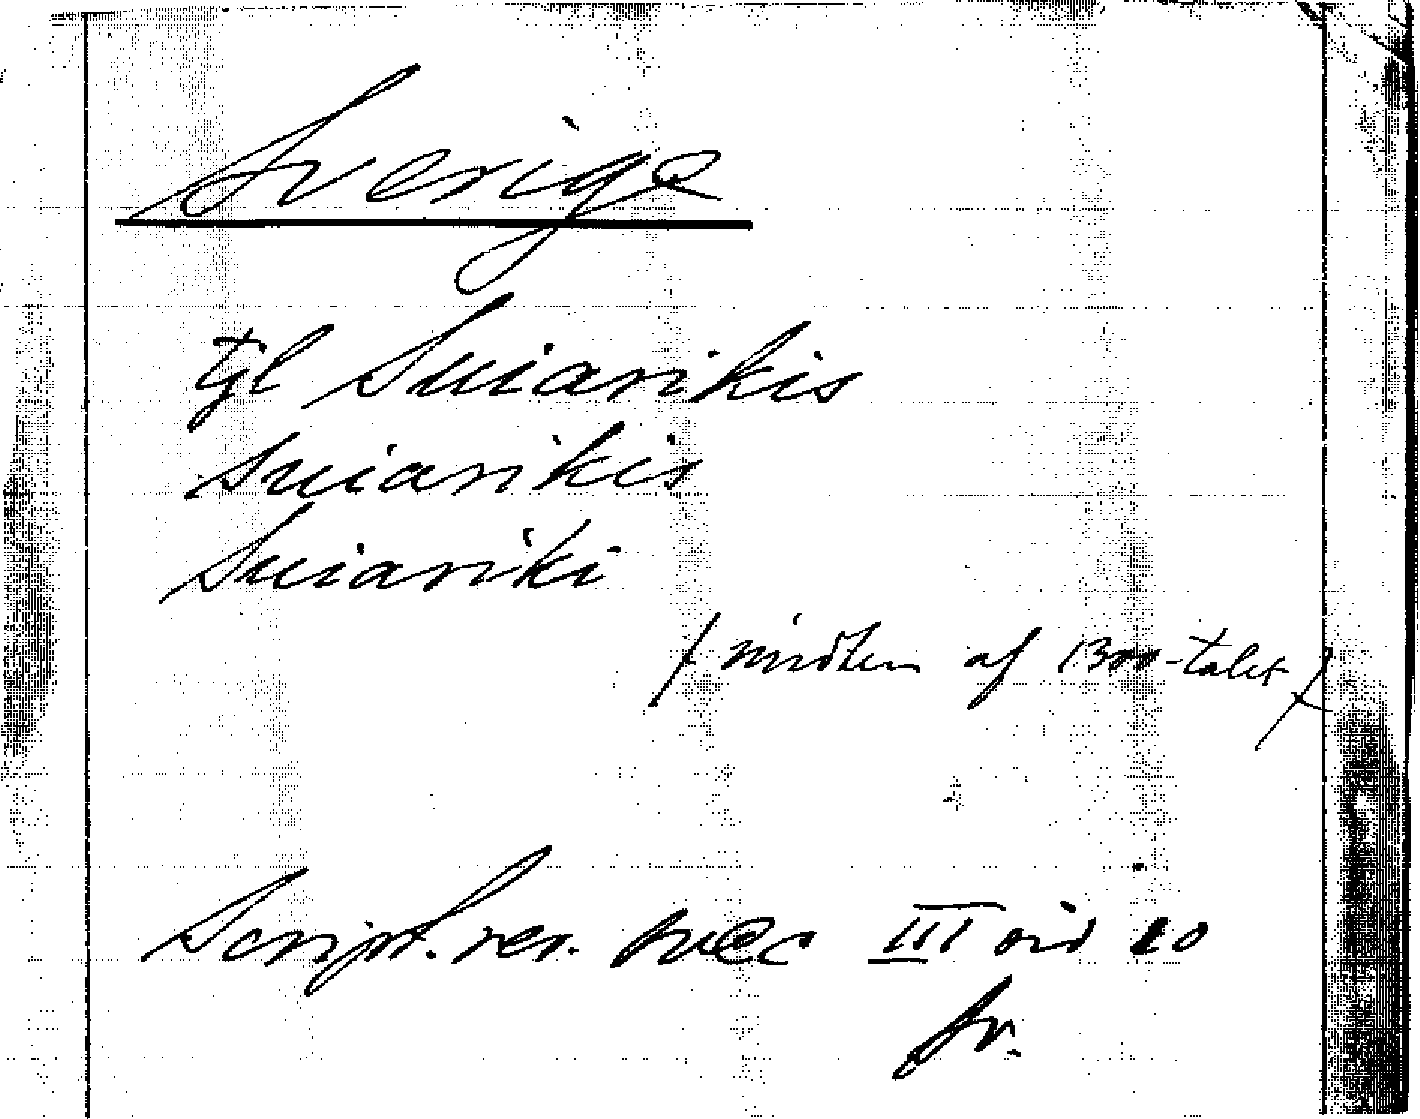 Sverige
tgl Suiarikis
suiarikis
Suiariki
(midten af 1300-talet)
Script. rer. svec III sid 20
Sv.